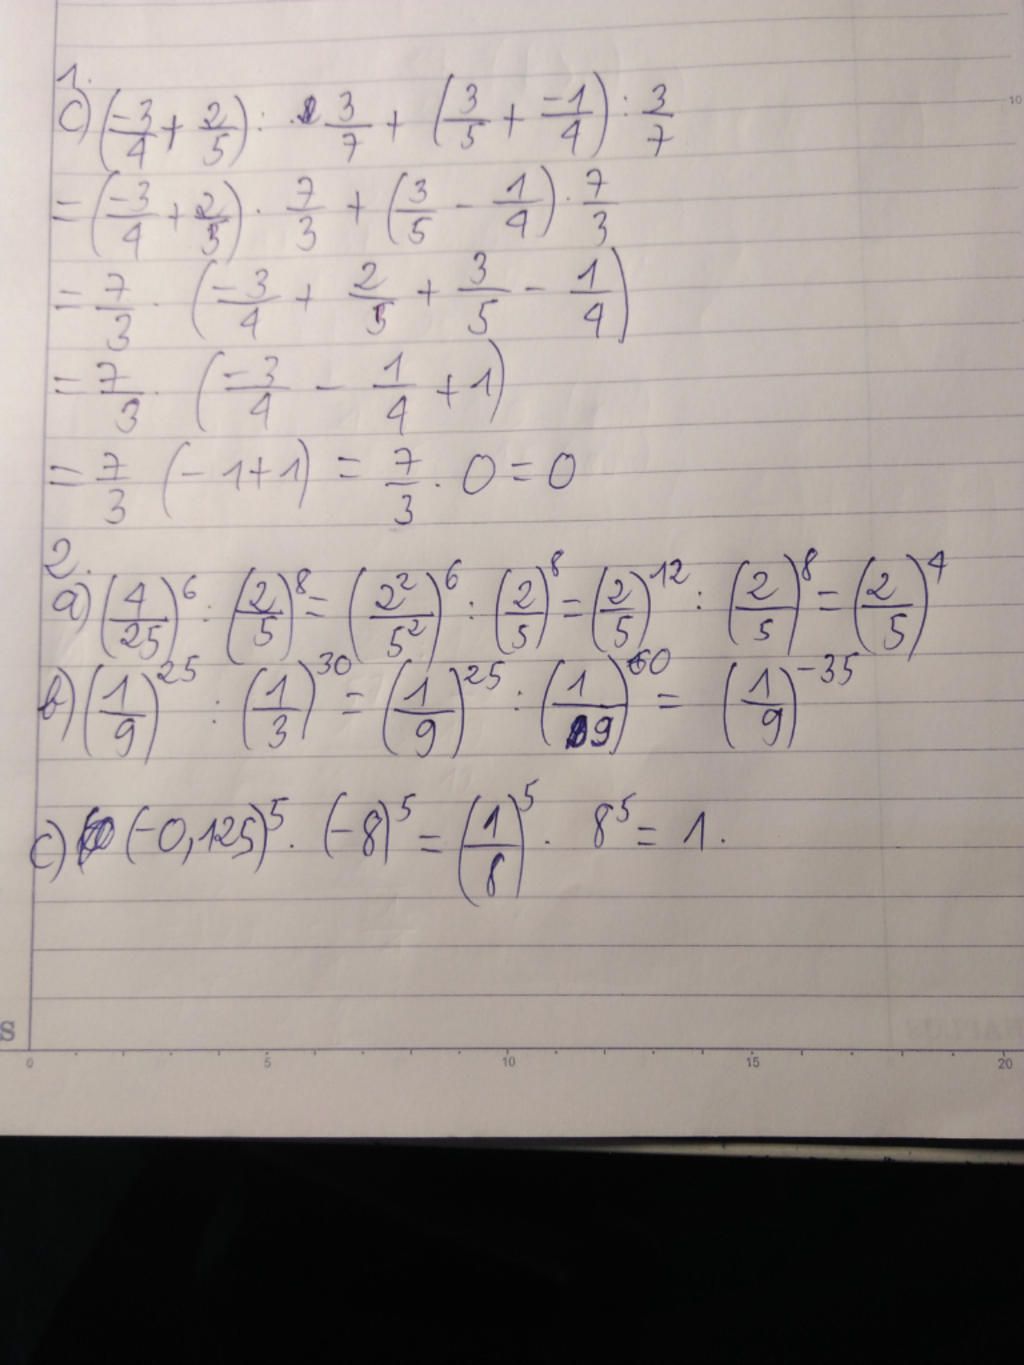 1.
c) (-3/4 + 2/5) : 3/7 + (3/5 + -1/4) : 3/7
= (-3/4 + 2/5) · 7/3 + (3/5 - 1/4) · 7/3
= 7/3 · (-3/4 + 2/5 + 3/5 - 1/4)
= 7/3 · (-3/4 - 1/4 + 1)
= 7/3 (-1+1) = 7/3 · 0 = 0
2.
a) (4/25)^6 : (2/5)^8 = (2^2/5^2)^6 : (2/5)^8 = (2/5)^12 : (2/5)^8 = (2/5)^4
b) (1/9)^25 : (1/3)^30 = (1/9)^25 : (1/9)^60 = (1/9)^-35
c) (-0,125)^5 · (-8)^5 = (1/8)^5 · 8^5 = 1.
S
0 5 10 15 20
10